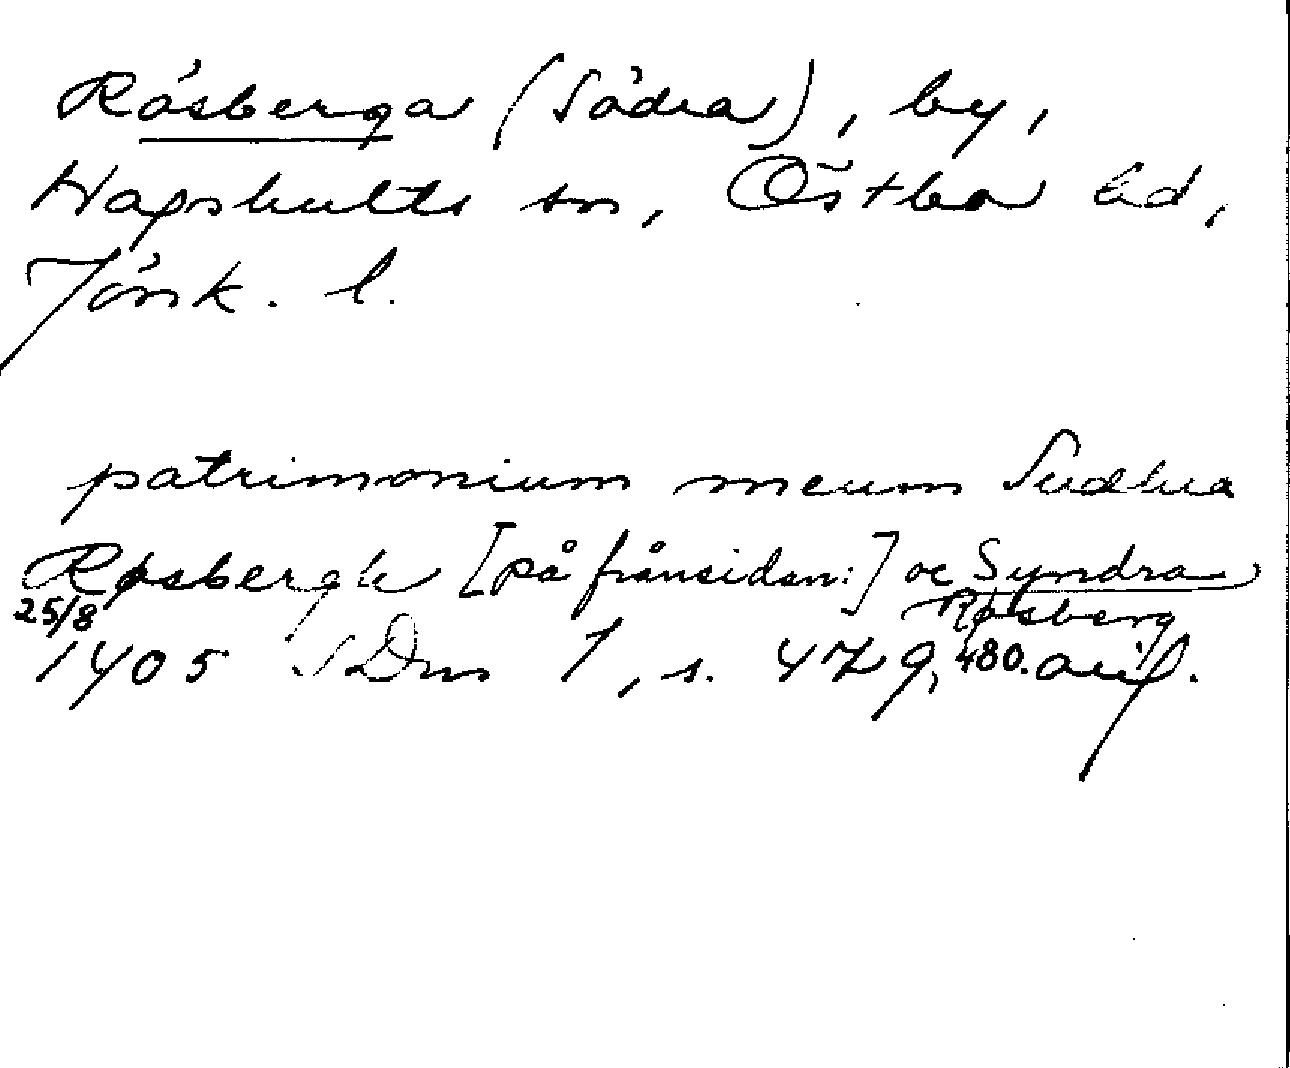 Rösberga (Södra), by,
Hagshults sn, Östbo hd,
Jönk. l.
patrimonium meum Sudhra
Røsbergh [på frånsidan:] oc Syndra
Røsberg
25/8
1405 SDns 1, s. 479, 480. avs.